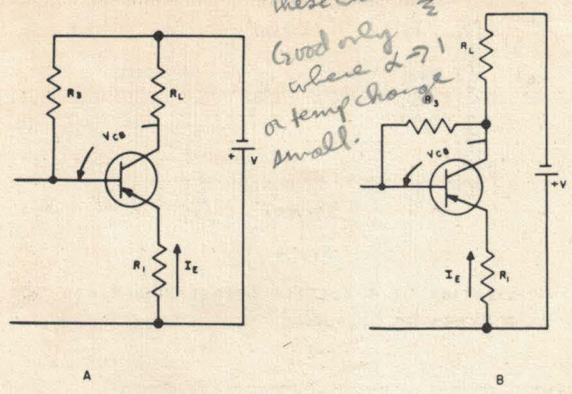 these
Good only
where α→1
or temp change
small.
R3
RL
VCB
+ V
R1
IE
A
RL
R3
VCB
+V
IE
R1
B